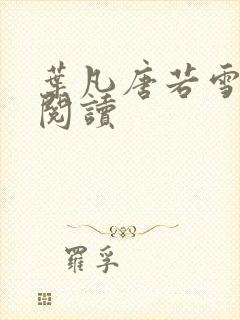 葉凡唐若雪
閱讀
羅孚